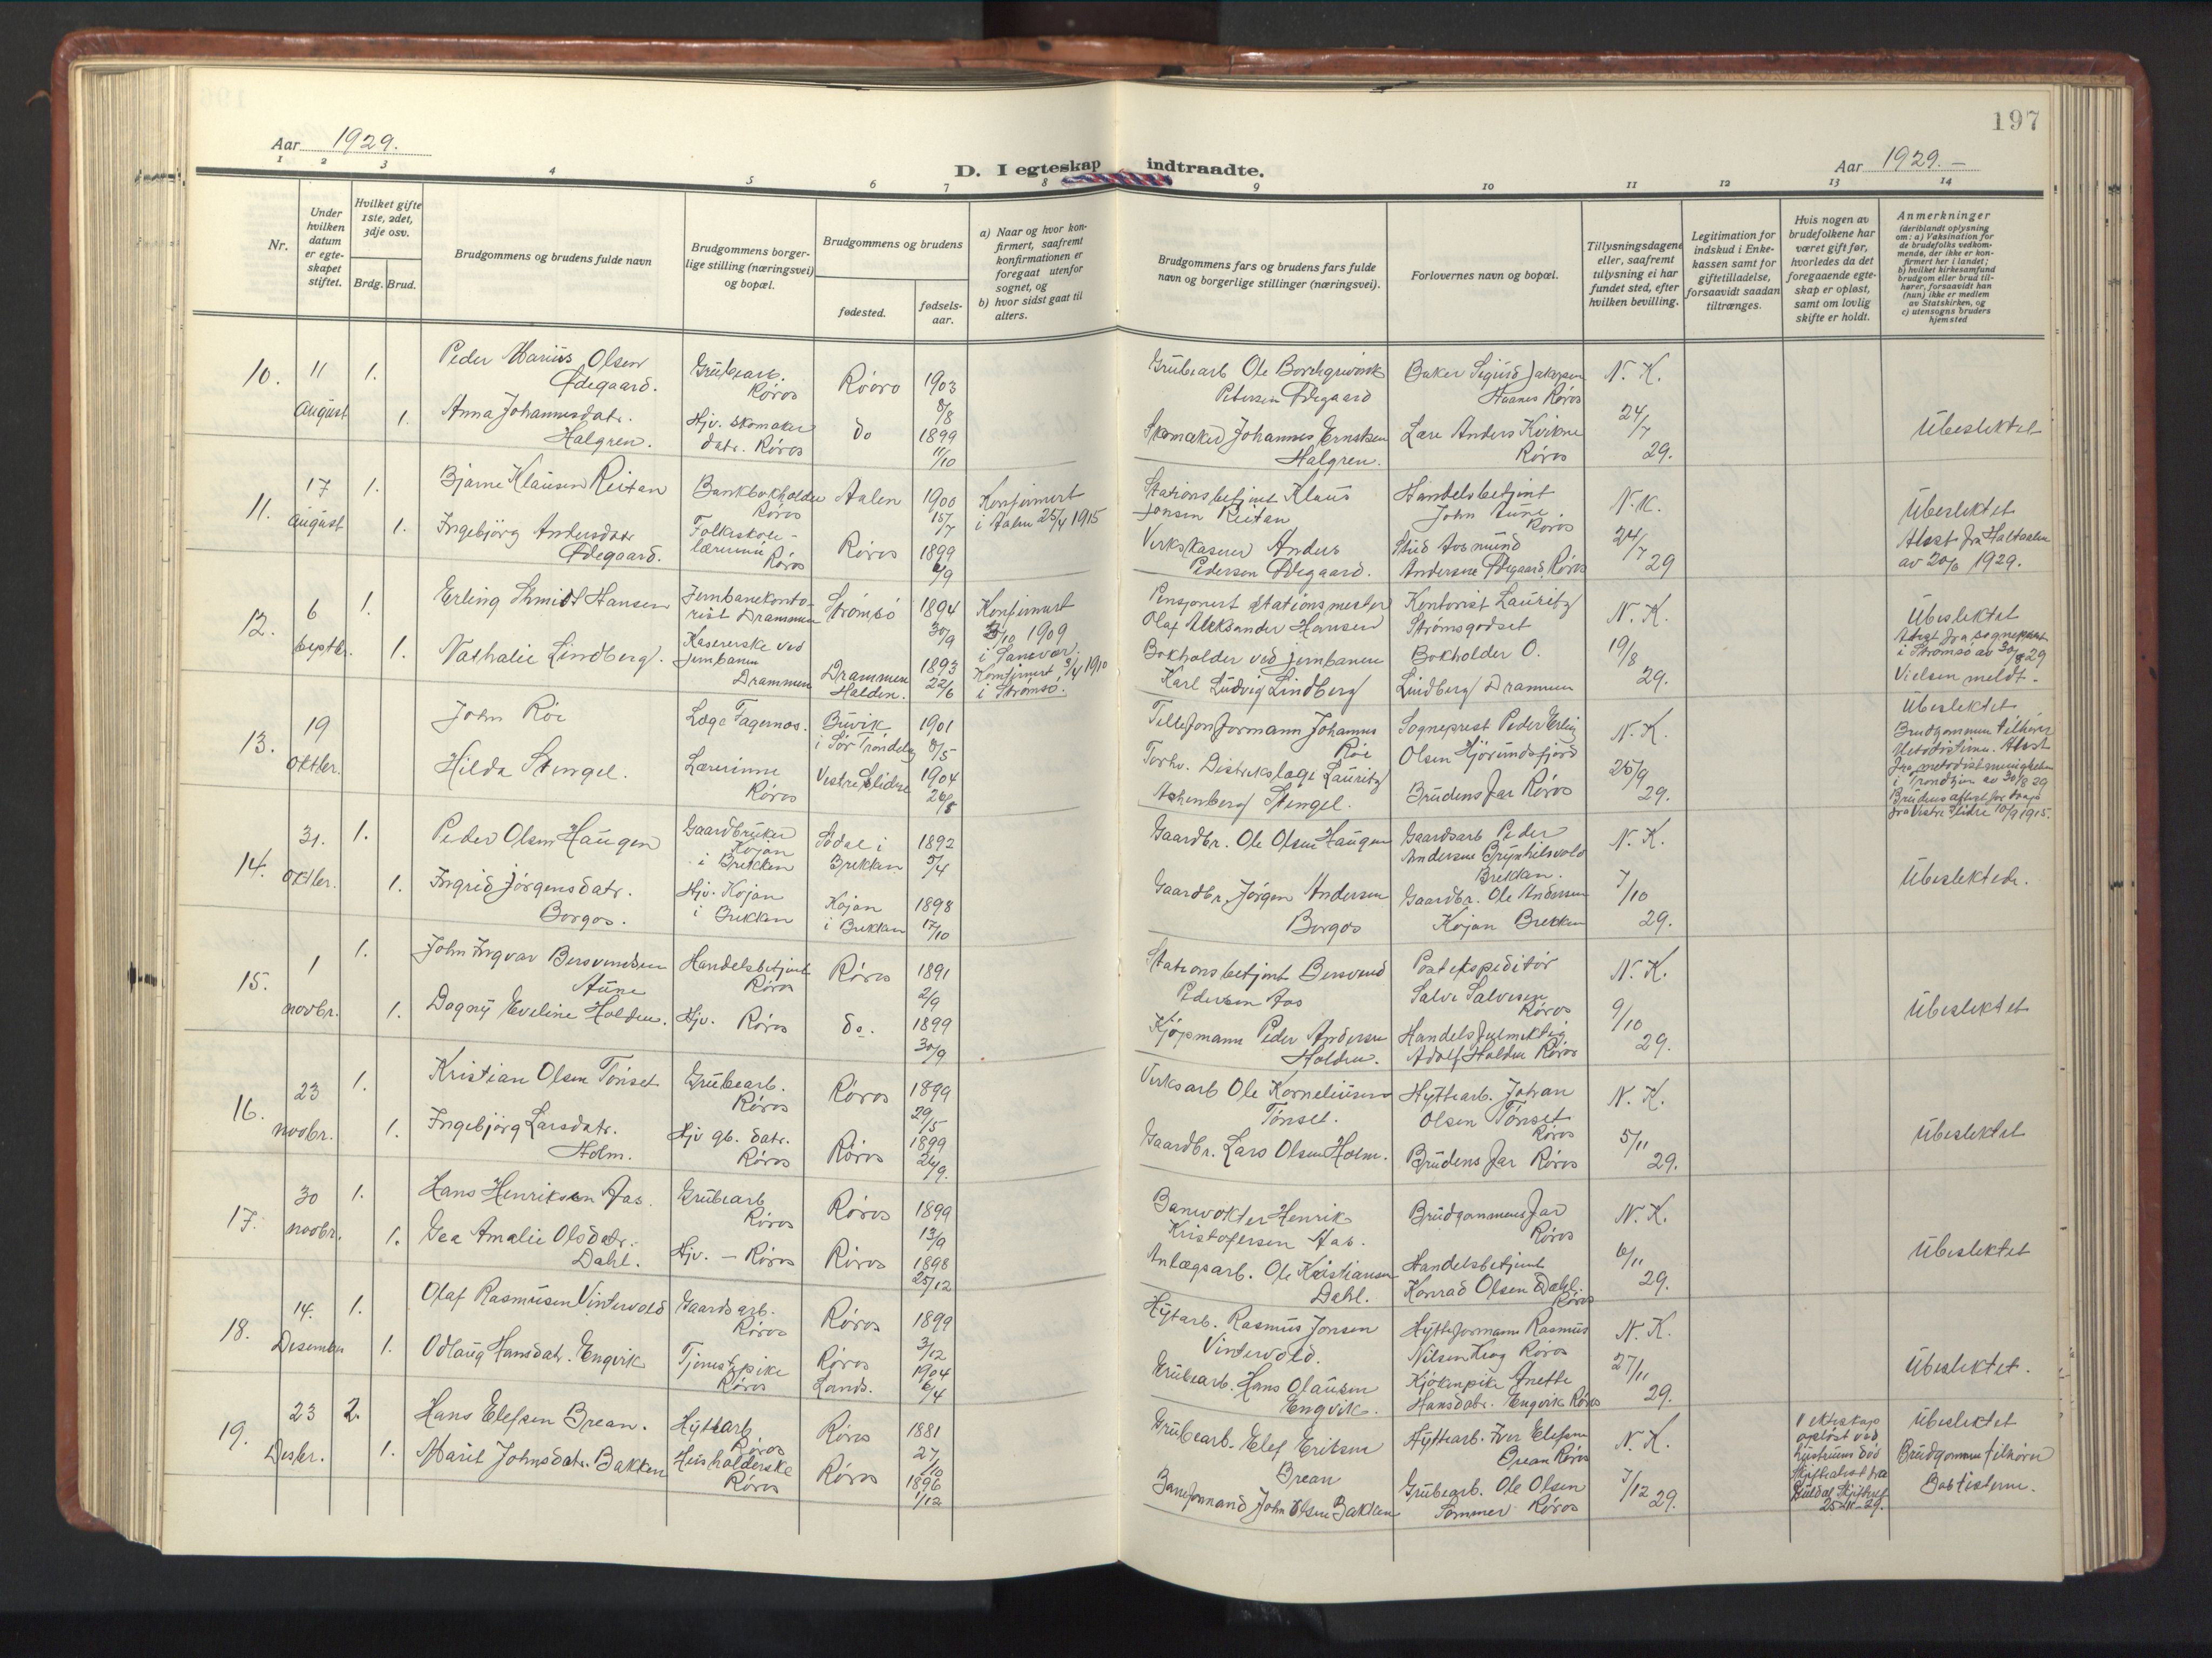 197
Aar 1929.
D. I egteskap indtraadte.
Aar 1929.-
1 2 3 4 5 6 7 8 9 10 11 12 13 14
Nr.
Under hvilken datum er egteskapet stiftet.
Hvilket gifte 1ste, 2det, 3dje osv.
Brdg. Brud.
Brudgommens og brudens fulde navn
Brudgommens borgerlige stilling (næringsvei) og bopæl.
Brudgommens og brudens
fødested.
fødselsaar.
a) Naar og hvor konfirmert, saafremt konfirmationen er foregaat utenfor sognet, og
b) hvor sidst gaat til alters.
Brudgommens fars og brudens fars fulde navn og borgerlige stillinger (næringsvei).
Forlovernes navn og bopæl.
Tillysningsdagene eller, saafremt tillysning ei har fundet sted, efter hvilken bevilling.
Legitimation for indskud i Enkekassen samt for giftetilladelse, forsaavidt saadan tiltrænges.
Hvis nogen av brudefolkene har været gift før, hvorledes da det foregaaende egteskap er opløst, samt om lovlig skifte er holdt.
Anmerkninger (deriblandt oplysning om: a) Vaksination for de brudefolks vedkommende, der ikke er konfirmert her i landet; b) hvilket kirkesamfund brudgom eller brud tilhører, forsaavidt han (hun) ikke er medlem av Statskirken, og c) utensogns bruders hjemsted
10. 11 august 1. Peder Marius Olsen Ødegaard. Grubearb. Røros Røros 1903 8/8
Grubearb Ole Borchgrevink Petersen Ødegaard
Baker Sigurd Jakopsen Røros
N. K. 24/7 29.
1. Anna Johannesdatr. Halgren. Hjv. skomaker datr. Røros do 1899 11/10
Skomaker Johannes Ernstsen Halgren.
Lære Anders Kvikne Røros
Ubeslektet
11. 17 august 1. Bjarne Klausen Reitan Bankbokholder Røros Aalen 1900 15/7 Konfirmert i Aalen 25/4 1915
Stationsbetjent Klaus Jonsen Reitan
Handelsbetjent John Aune. Røros
N. K. 24/7 29
1. Ingebjørg Andersdatr Ødegaard. Folkeskolelærerinne Røros Røros 1899 6/9
Verkskaserer Anders Pedersen Ødegaard.
Stud Aasmund Andersen Ødegaard, Røros
Ubeslektet
Atest fra Haltaalen av 20/8 1929.
12. 6 septbr. 1. Erling Shmidt Hansen Jernbanekontorist Drammen Strømsø 1894 30/9 Konfirmert 3/10 1909 i Sansvær.
Pensjonert stationsmester Olaf Aleksander Hansen
Kontorist Lauritz Strømsgodset
N. K. 19/8 29.
1. Nathalie Lindberg. Kasererske ved jernbanen Drammen Drammen Halden. 1893 22/6 Konfirmert 3/4 1910 i Strømsø.
Bokholder ved jernbanen Karl Ludvig Lindberg
Bokholder O. Lindberg Drammen
Ubeslektet
Atest fra sogneprest i Strømsø av 30/8 29
Vielsen meldt.
13. 19 oktbr. John Røe Læge Fagernes. Buvik i Sør Trøndelag 1901 8/5
Tellefonformann Johannes Røe
Sogneprest Peder Erling Olsen Hjørundsfjord
N. K. 25/9 29.
Hilda Stengel. Lærerinne Røros Vestre Slidre 1904 26/8
Forhv. Distrikslæge Lauritz Aschenberg Stengel.
Brudens far Røros
Ubeslektet
Brudgommen tilhører Metodistirne. Atest fra metodistmenigheten i Trondhjem av 30/8 29
Brudens attest for daap fra Vestre Slidre 10/9 1915.
14. 31. oktbr. 1. Peder Olsen Haugen Gaardbruker Kojan i Brekken Sødal i Brekken 1892 5/4
Gaardbr. Ole Olsen Haugen
Gaardsarb Peder Andersen Brynhilsvold Brekken.
N. K. 7/10 29.
1. Ingrid Jørgensdatr. Borgos. Hjv. Kojan i Brekken Kojan i Brekken 1898 17/10
Gaardbr. Jørgen Andersen Borgos
Gaardbr. Ole Andersen Kojan Brekken
Ubeslektede.
15. 1 novbr. 1. John Ingvar Bersvendsen Aune Handelsbetjent Røros Røros 1891 2/9
Stationsbetjent Bersvend Pedersen Aas
Postekspeditør Salve Salvesen Røros
N. K. 9/10 29.
1. Dagny Eveline Holden. Hjv. Røros do. 1899 30/9
Kjøpmann Peder Andersen Holden.
Handelsfulmektig Adolf Holden Røros
Ubeslektet
16. 23 novbr. 1. Kristian Olsen Tønset Grubearb. Røros Røros 1899 29/5
Verksarb Ole Korneliusen Tønset.
Hyttearb. Johan Olsen Tønset Røros
N. K. 5/11 29.
1. Ingebjørg Larsdatr. Holm. Hjv gb. datr. Røros Røros 1899 26/9.
Gaardbr. Lars Olsen Holm.
Brudens far Røros
Ubeslektet
17. 30 novbr. 1. Hans Henriksen Aas. Grubearb Røros Røros 1899 13/9
Banevokter Henrik Kristofersen Aas.
Brudgommens far Røros
N. K. 6/11 29.
1. Gea Amalie Olsdatr. Dahl. Hjv. - Røros Røros 1898 25/12
Anlægsarb. Ole Kristiansen Dahl.
Handelsbetjent Konrad Olsen Dahl. Røros
Ubeslektet
18. 14. Desember 1. Olaf Rasmusen Vintervold Gaardsarb. Røros Røros 1899 3/12
Hyttarb. Rasmus Jonsen Vintervold.
Hytteformann Rasmus Nilsen Krog Røros
N. K. 27/11 29.
1. Odlaug Hansdatr. Engvik Tjenestpike Røros Røros Lands. 1904 6/4
Grubearb. Hans Olausen Engvik.
Kjøkenpike Anette Hansdatr. Engvik Røros
Ubeslektet.
19. 23 Desbr. 2. Hans Elefsen Brean. Hyttarb Røros Røros 1881 27/10
Grubearb. Elef Eriksen Brean
Hyttearb. Iver Elefsen Brean Røros
N. K. 7/12 29.
1. Marit Johnsdatr. Bakken Husholderske Røros Røros 1896 1/12
Baneformand John Olsen Bakken
Grubearb. Ole Olsen Sommer Røros
1 ekteskap opløst ved hustruens død Skifteatest fra 25-11-29.
Ubeslektet
Brudgommen tilhører Babtisterne.